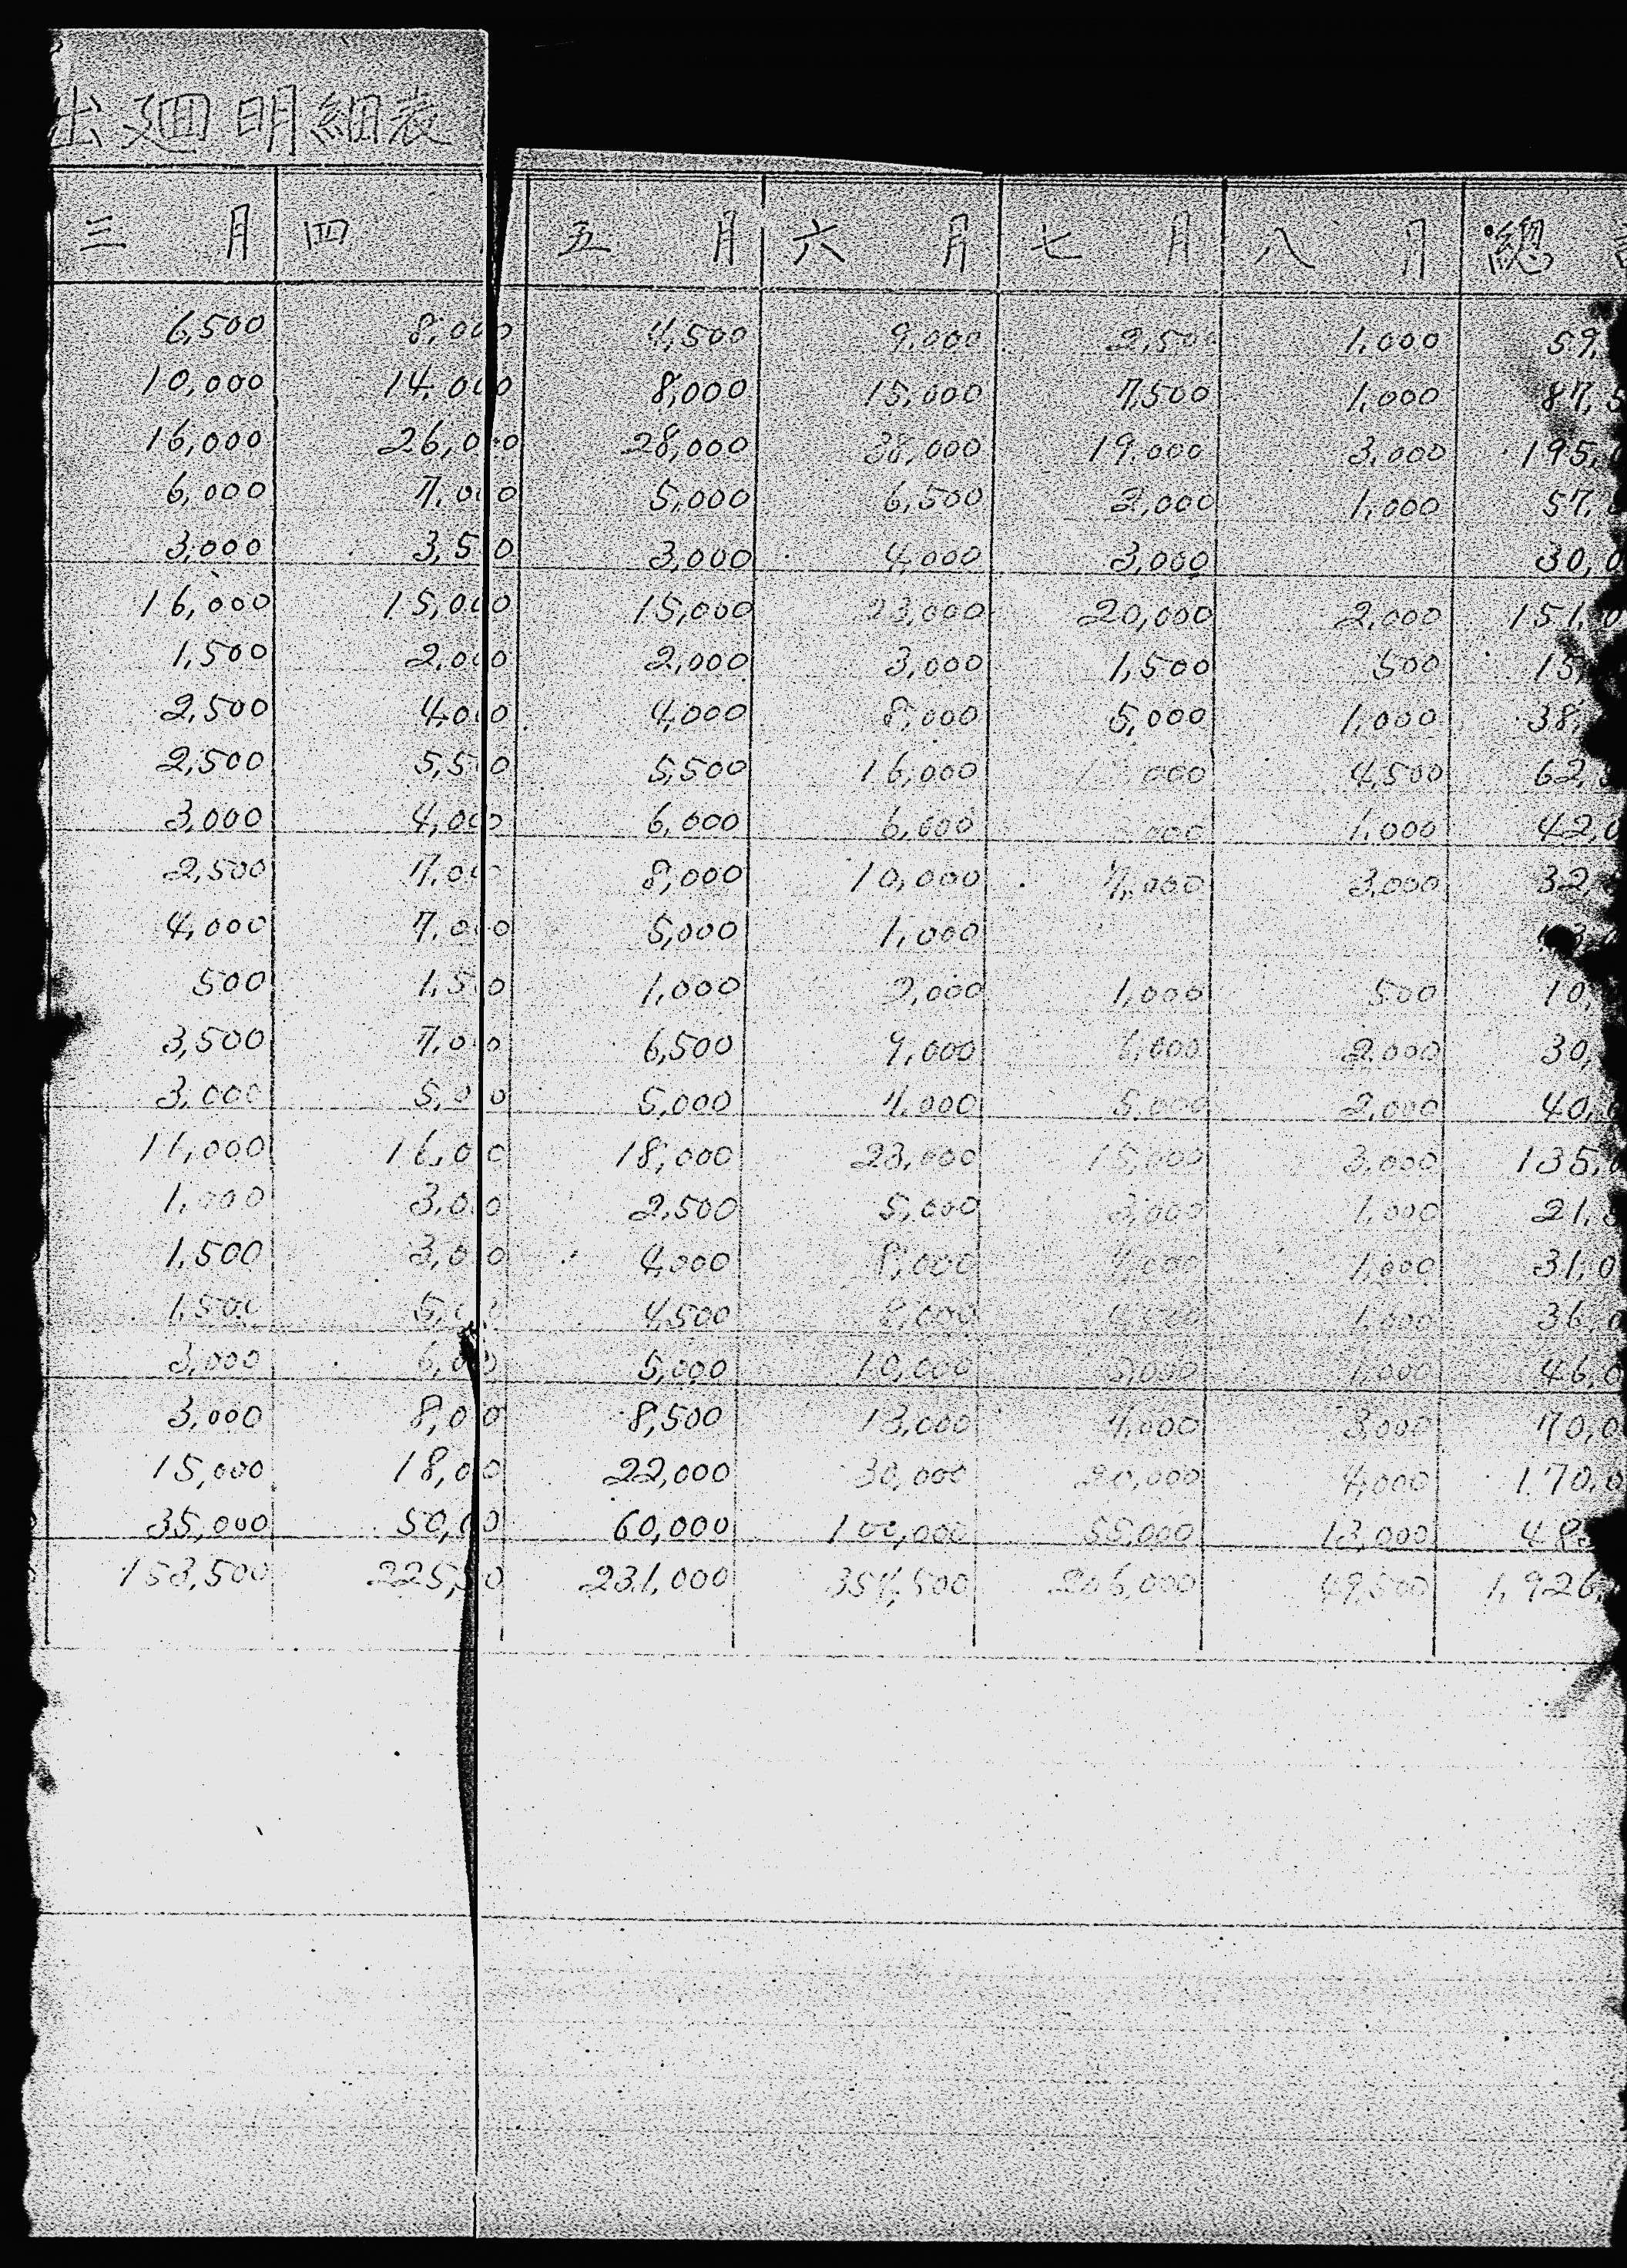 出廻明細表
三月 四 五月 六月 七月 八月 總
6,500 8,000 4,500 9,000 2,500 1,000 59,
10,000 14,000 8,000 15,000 7,500 1,000 87,5
16,000 26,000 28,000 38,000 19,000 3,000 195,
6,000 7,000 5,000 6,500 2,000 1,000 57,
3,000 3,500 3,000 4,000 3,000 30,0
16,000 15,000 15,000 23,000 20,000 2,000 151,0
1,500 2,000 2,000 3,000 1,500 500 15,
2,500 4,000 4,000 8,000 5,000 1,000 38,
2,500 5,500 5,500 16,000 4,500 62,
3,000 4,000 6,000 6,000 1,000 42,0
2,500 7,000 8,000 10,000 7,000 3,000 32,
4,000 7,000 5,000 1,000
500 1,500 1,000 2,000 1,000 500 10,
3,500 7,000 6,500 9,000 2,000 30,
3,000 5,000 5,000 4,000 5,000 2,000 40,
11,000 16,000 18,000 23,000 15,000 3,000 135,
1,000 3,000 2,500 5,000 3,000 1,000 21,
1,500 3,000 4,000 8,000 4,000 1,000 31,0
1,500 5,000 4,500 8,000 4,500 1,000 36,0
3,000 6,000 5,000 10,000 5,000 1,000 46,0
3,000 8,000 8,500 13,000 4,000 3,000 70,0
15,000 18,000 22,000 30,000 20,000 4,000 170,0
35,000 50,000 60,000 100,000 55,000 13,000 48
153,500 225,500 231,000 354,500 206,000 49,500 1,926,